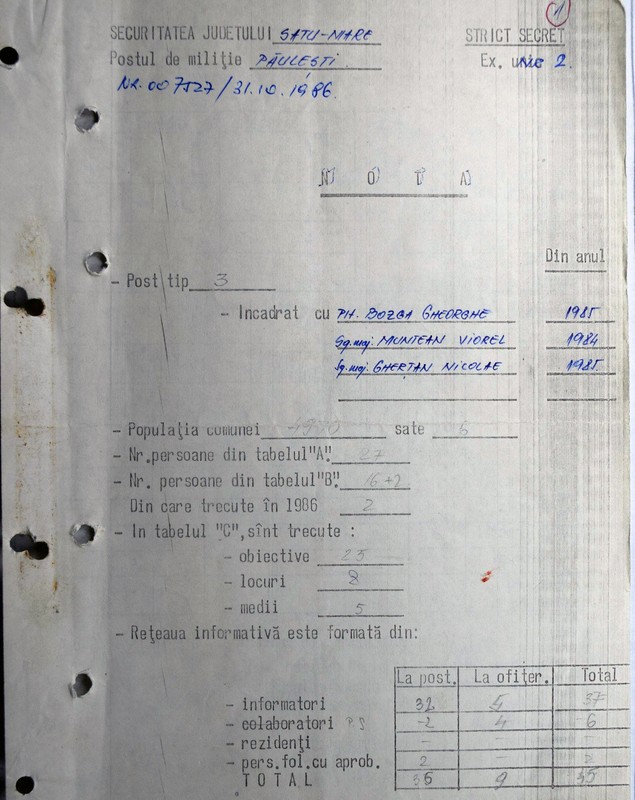 1
SECURITATEA JUDEŢULUI SATU-MARE STRICT SECRET
Postul de miliţie PĂULEŞTI. Ex. unic 2.
NR. 007527/31.10.1986.
N O T A
Din anul
- Post tip 3
- Incadrat cu PH. BOZGA GHEORGHE 1985
Sg.maj. MUNTEAN VIOREL 1984
Sg.maj. GHERŢAN NICOLAE 1985
- Populaţia comunei sate 6
- Nr.persoane din tabelul "A" 27
- Nr. persoane din tabelul "B" 16+2
Din care trecute în 1986 2
- In tabelul "C", sînt trecute :
- obiective 25
- locuri 8
- medii 5
- Reţeaua informativă este formată din:
La post. La ofiţer. Total
- informatori 32 5 37
- colaboratori PS 2 4 6
- rezidenţi - - -
- pers.fol.cu aprob. 2 - 2
T O T A L 36 9 45